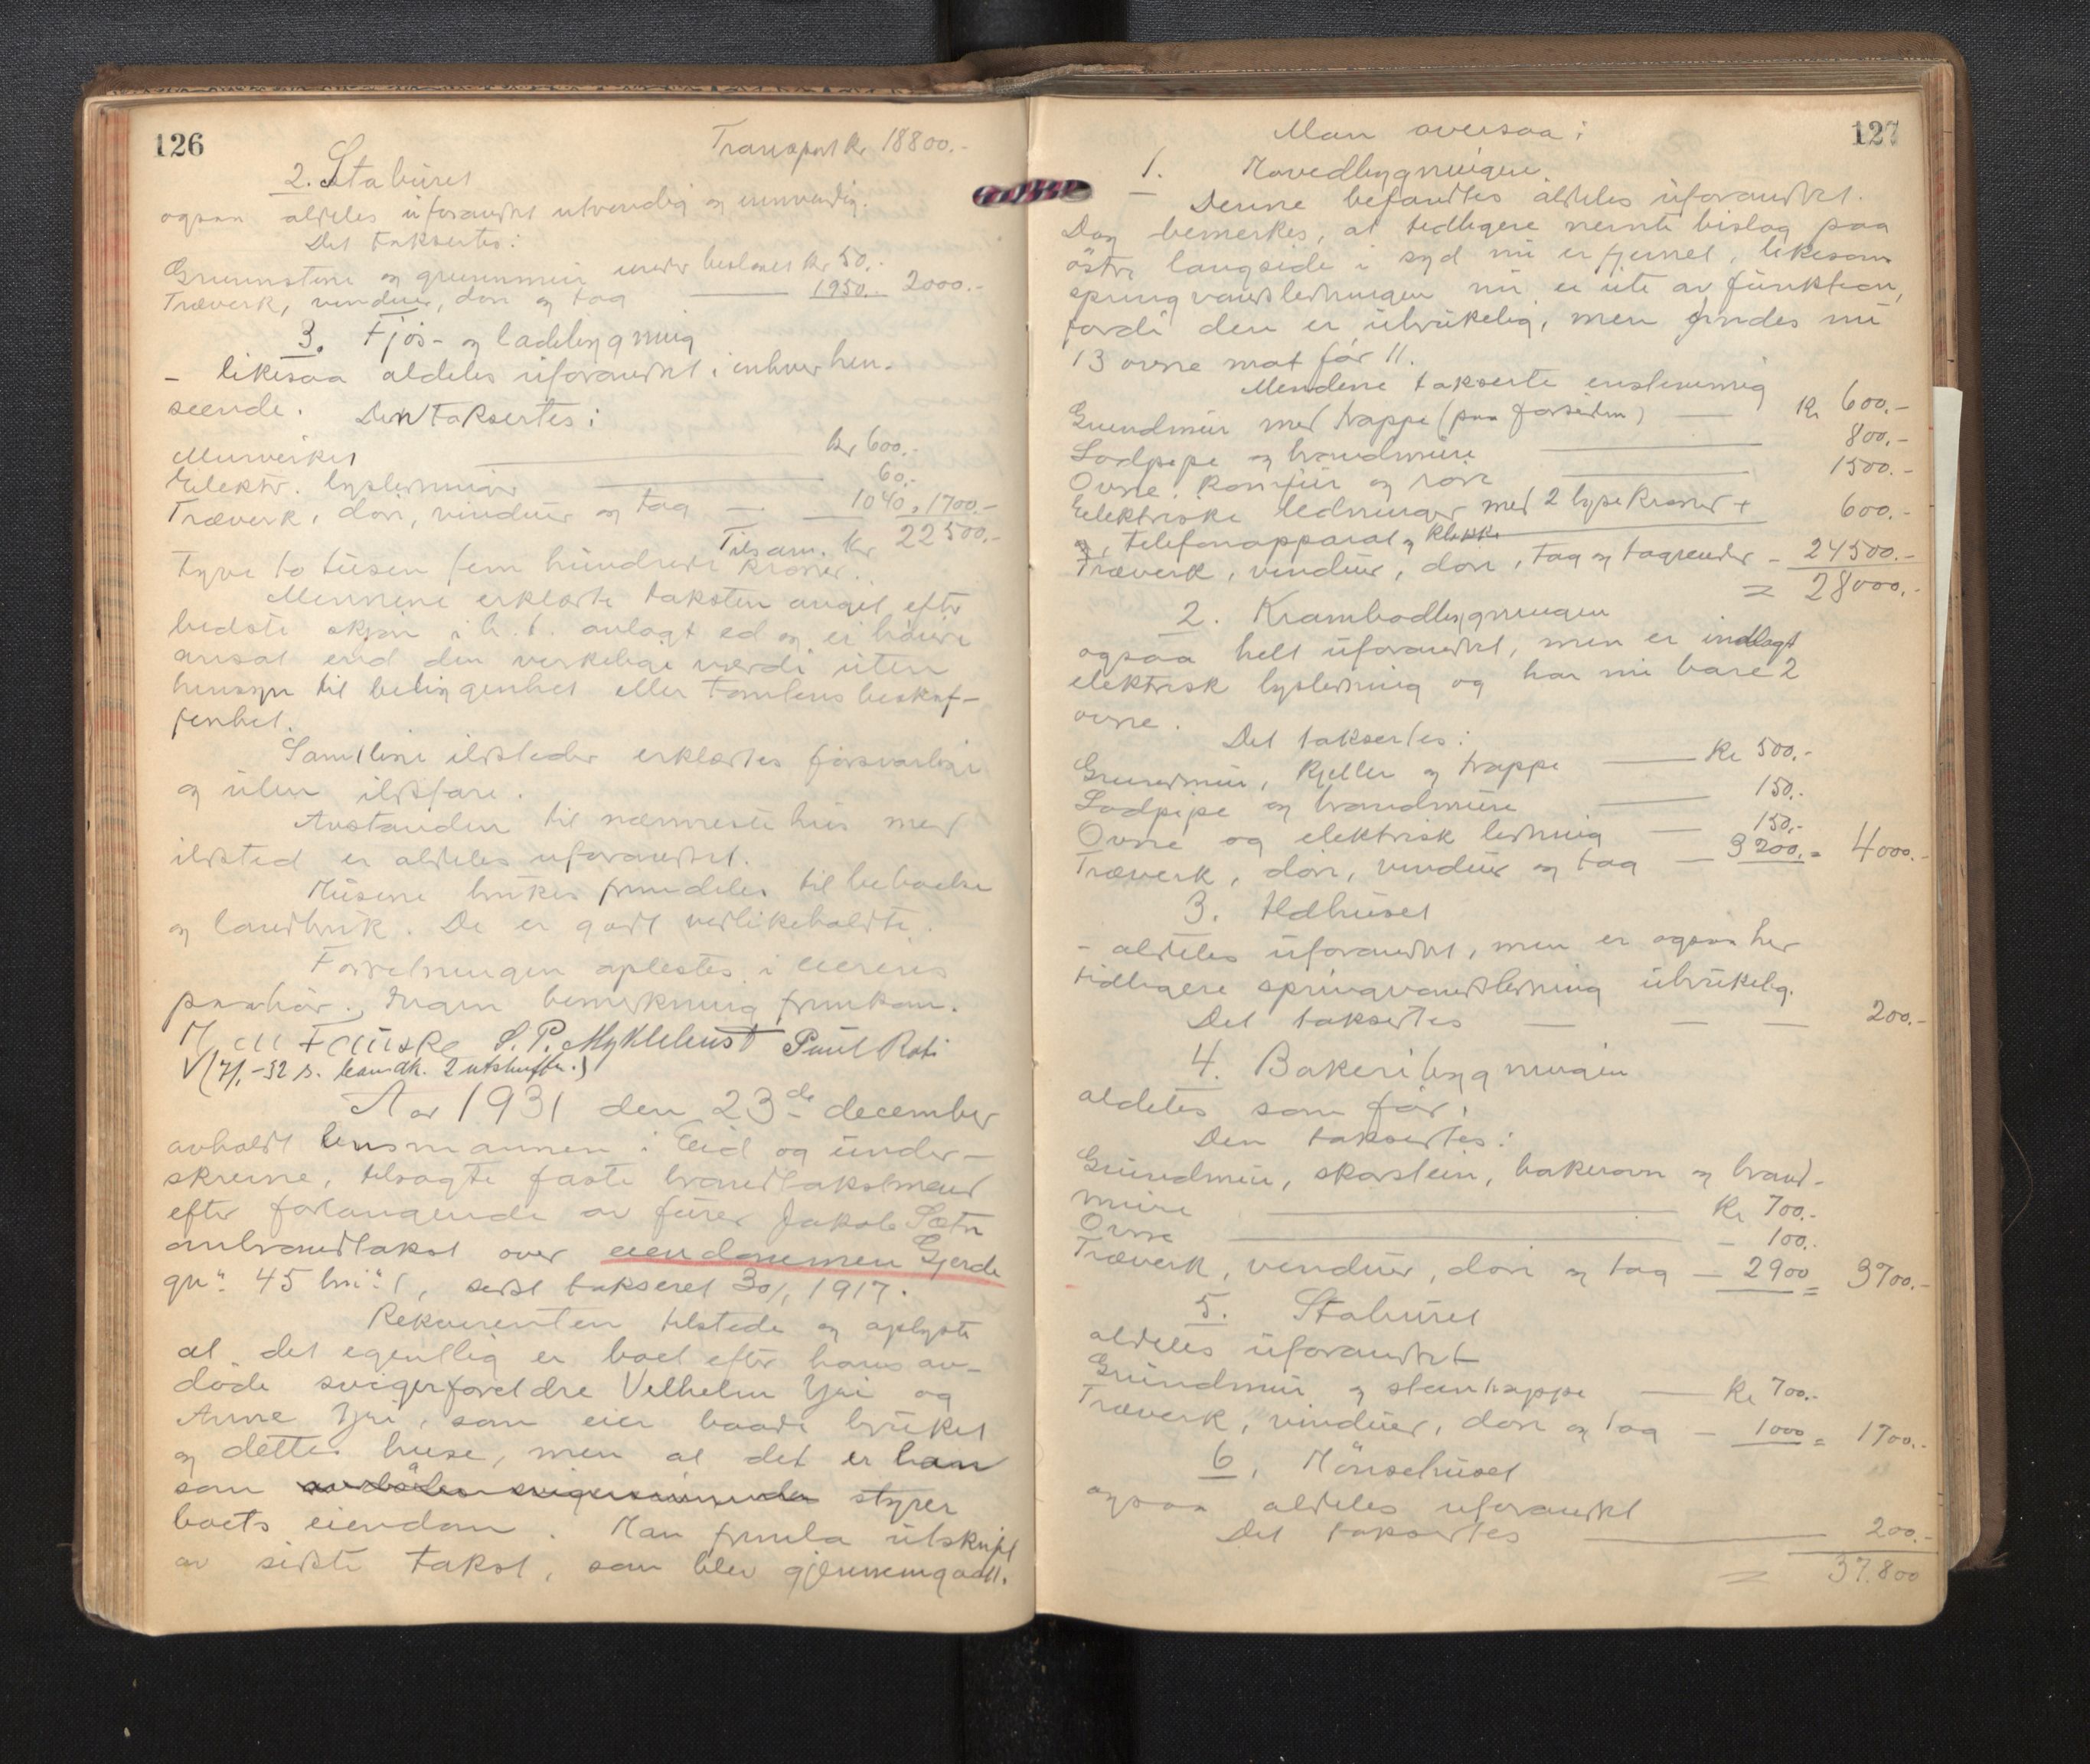 126
Transport kr 18800.-
2. Staburet
ogsaa aldeles uforandret utvendig og innvendig.
Det taksertes:
Grunnstene og grunnmur under huset kr 50.-
Træverk, vinduer, dører og tag 1950.- 2000.-
3. Fjøs- og ladebygning
- likesaa aldeles uforandret i enhver hen-
seende. Den taksertes:
Murverket kr 600.-
Elektr. lysledning 60.-
Træverk, dører, vinduer og tag 1040 = 1700.-
Tilsam. kr 22500.-
Tyve to tusen fem hundrede kroner.
Mennene erklærte taksten angit efter
bedste skjøn i h. t. avlagt ed og ei høiere
ansat end den verkelige værdi uten
hensyn til beliggenhet eller tomtens beskaf-
fenhet.
Samtlige ildsteder erklærtes forsvarlige
og uten ildsfare.
Avstanden til nærmeste hus med
ildsted er aldeles uforandret.
Husene brukes fremdeles til beboelse
og landbruk. De er godt vedlikeholdte.
Forretningen oplestes i eierens
paahør. Ingen bemerkning fremkom.
S. P. Myklebust Paul Roti
V (7/1 -32 s. brandk. 2 utskrifter.)
Aar 1931 den 23de december
avholdt lensmannen i Eid og under-
skrevne, tilsagte faste brandtakstmænd
efter forlangende av fører Jakob Sætre
ombrandtakst over eiendommen Gjerde
gn. 45 bn. 1, sidst taksert 30/1 1917.
Rekvirenten tilstede og oplyste
at det egentlig er boet efter hans av-
døde svigerforeldre Velhelm Yri og
Anne Yri, som eier baade bruket
og dettes huse, men at det er han
som styrer
boets eiendom. Han fremla utskrift
av sidste takst, som blev gjennemgaatt.
127
Man oversaa:
1. Hovedbygningen.
Denne befandtes aldeles uforandret.
Dog bemerkes, at tidligere nevnte bislag paa
østre langside i syd nu er fjernet, likesom
springvandsledningen nu er ute av funktion,
fordi den er ubrukelig, men findes nu
13 ovne mot før 11.
Mendene takserte enstemmig
Grundmur med trappe (paa forsiden) kr 600.-
Lodpipe og brandmure 800.-
Ovne, komfur og rør 1500.-
Elektriske ledninger med 2 lysekroner +
telefonapparat og klokke 600.-
Træverk, vinduer, dører, tag og tagrender - 24500.-
= 28000.-
2. Krambodbygningen
ogsaa helt uforandret, men er indlagt
elektrisk lysledning og har nu bare 2
ovne.
Det taksertes:
Grundmur, kjeller og trappe kr 500.-
Lodpipe og brandmure 150.-
Ovne og elektrisk ledning 150.-
Træverk, dører, vinduer og tag - 3200.- = 4000.-
3. Ildhuset
- aldeles uforandret, men er ogsaa her
tidligere springvandsledning ubrukelig.
Det taksertes 200.-
4. Bakeribygningen
aldeles som før.
Den taksertes:
Grundmur, skorstein, bakerovn og brand-
mure kr 700.-
Ovne - 100.-
Træverk, vinduer, dører og tag - 2900 = 3700.-
5. Staburet
aldeles uforandret
Grundmur og stentrappe kr 700.-
Træverk, vinduer, dører og tag - 1000 = 1700.-
6. Hønsehuset
ogsaa aldeles uforandret
Det taksertes 200.-
= 37.800